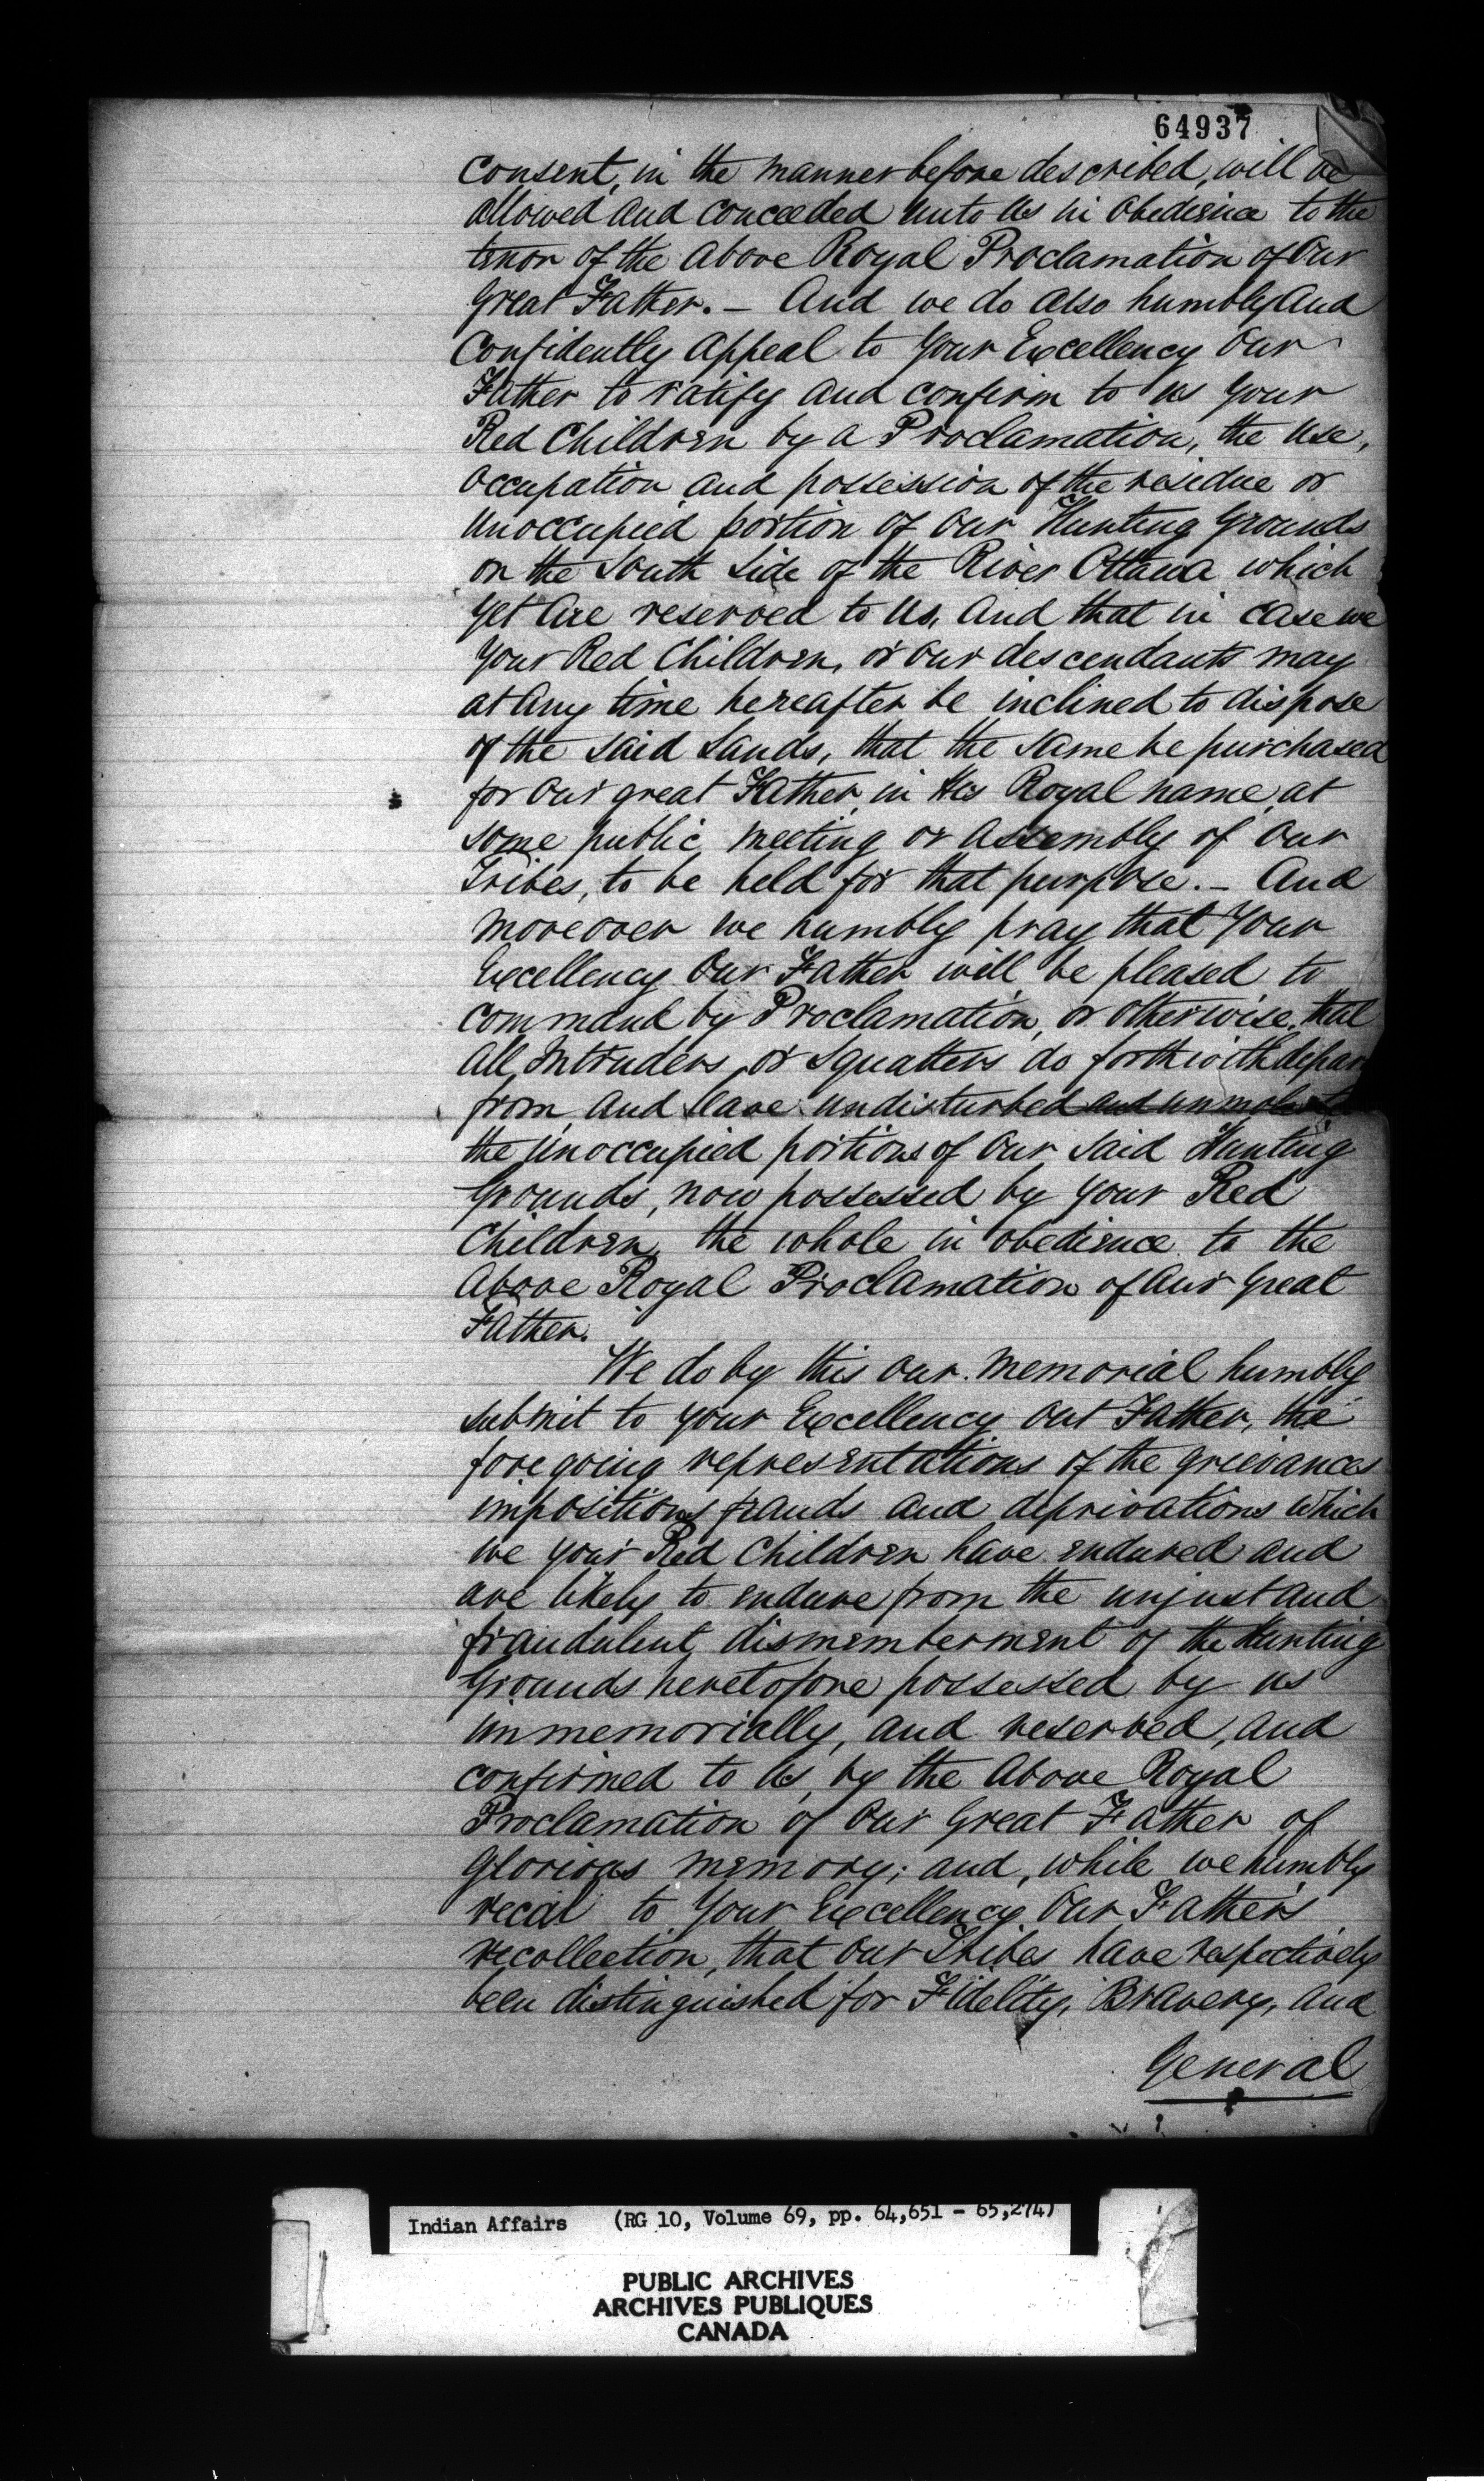 64937
Consent, in the manner before described, will be
allowed and conceeded unto us in obedience to the
tenor of the above Royal Proclamation of Our
Great Father. — And we do also humbly and
Confidently appeal to Your Excellency Our
Father to ratify and confirm to us Your
Red Children by a Proclamation, the use,
occupation and possession of the residue or
unoccupied portion of our Hunting Grounds
on the South Side of the River Ottawa which
yet are reserved to us, and that in case we
your Red Children, or our descendants may
at any time hereafter be inclined to dispose
of the said Lands, that the same be purchased
for our great Father in His Royal name, at
some public meeting or assembly of our
Tribes, to be held for that purpose. — And
moreover we humbly pray that Your
Excellency Our Father will be pleased to
command by Proclamation, or otherwise, that
all Intruders, or squatters do forthwith depar
from, and leave undisturbed and unmoleste
the unoccupied portions of our said Hunting
Grounds, now possessed by your Red
Children, the whole in obedience to the
above Royal Proclamation of our Great
Father.
We do by this our Memorial humbly
submit to your Excellency our Father, the
foregoing representations of the grievances
impositions frauds and deprivations which
we your Red Children have endured and
are likely to endure from the unjust and
fraudulent dismemberment of the Hunting
Grounds heretofore possessed by us
immemorially, and reserved, and
confirmed to us, by the above Royal
Proclamation of Our Great Father of
Glorious memory; and, while we humbly
recal to Your Excellency Our Father's
recollection, that our Tribes have respectively
been distinguished for Fidelity, Bravery, and
General
Indian Affairs (RG 10, Volume 69, pp. 64,651 - 65,274)
PUBLIC ARCHIVES
ARCHIVES PUBLIQUES
CANADA